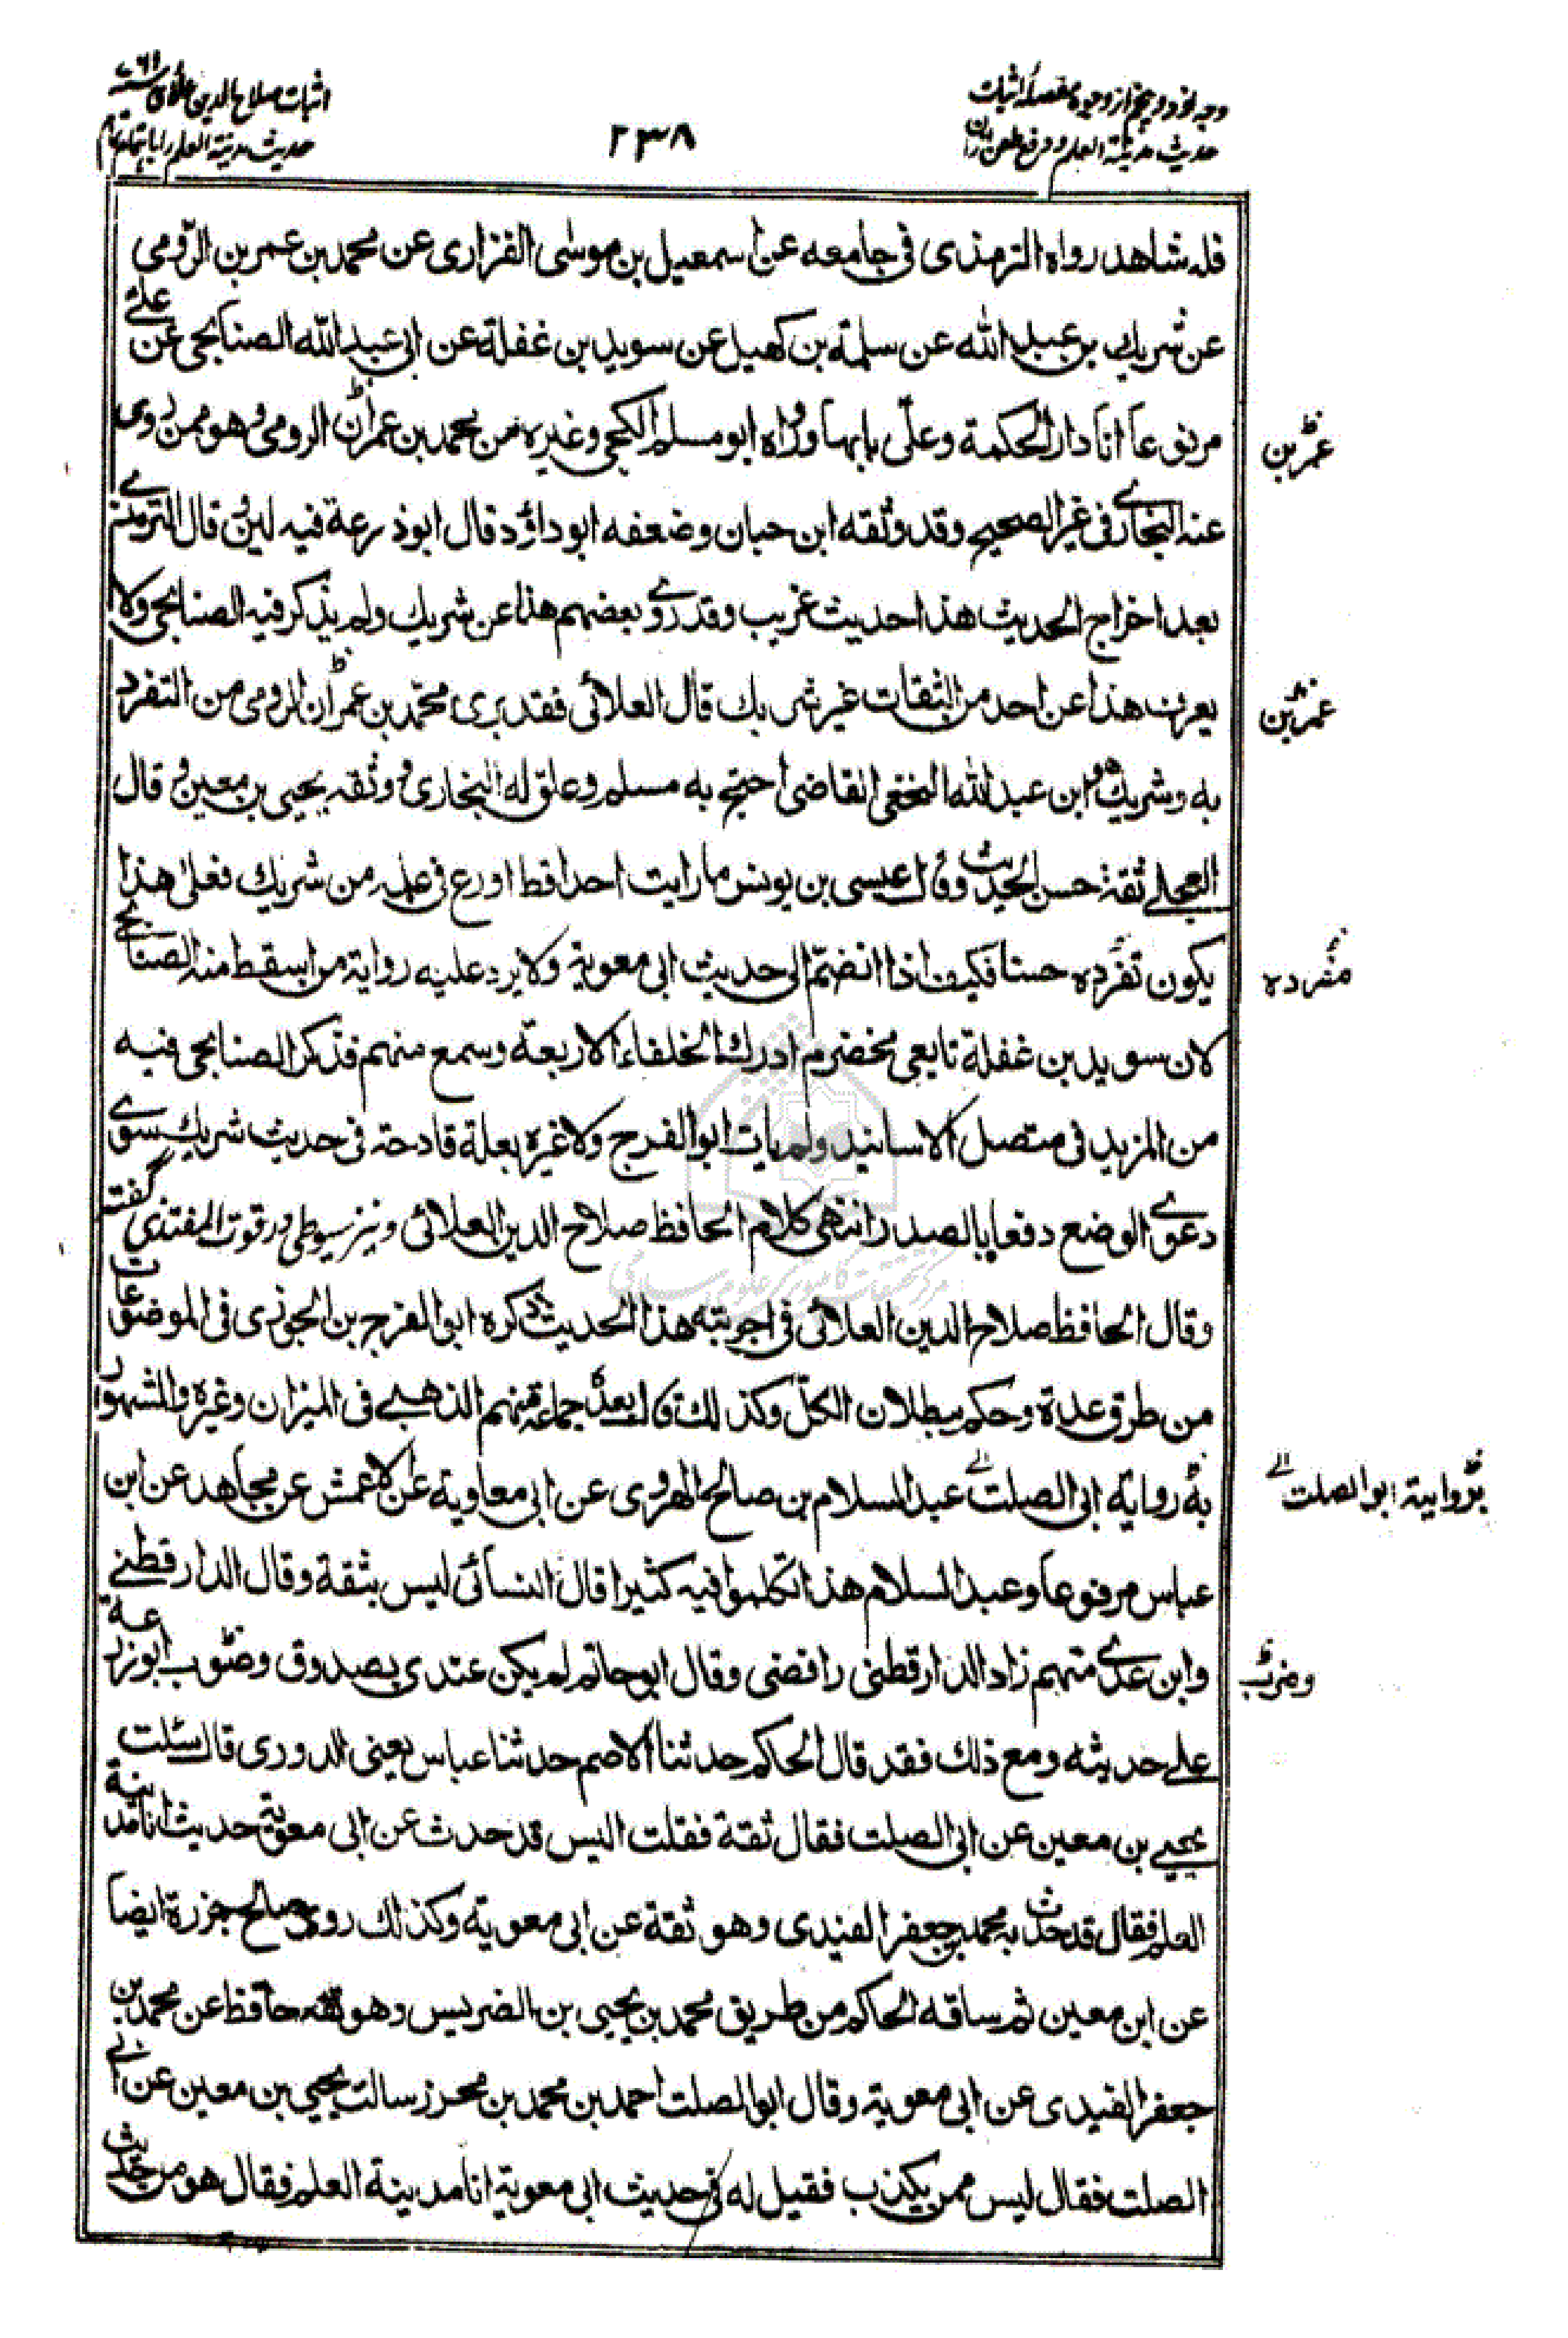 وجه نود و پنجم از وجوه مفصله اثبات
حديث مدينة العلم و دفع طعن
٢٣٨
اثبات صلاح الدين علائى
حديث مدينة العلم را
فله شاهد رواه الترمذى فى جامعه عن اسمعيل بن موسى الفزارى عن محمد بن عمر بن الرّومى
عن شريك بن عبد الله عن سلمة بن كهيل عن سويد بن غفلة عن ابى عبد الله الصنابحى عن علے
مرفوعا انا دار الحكمة وعلىّ بابها ورواه ابو مسلم الكجى وغيره من محمد بن عمران الرومى وهو ممن روى
عمر بن
عنه البخارے فى غير الصحيح وقد وثقه ابن حبان وضعفه ابو داؤد وقال ابو ذرعة فيه لين وقال الترمذے
بعد اخراج الحديث هذا حديث غريب وقد روے بعضهم هذا عن شريك ولم يذكر فيه الصنابحى ولا
يعرف هذا عن احد من الثقات غير شريك قال العلائى فقد برى محمّد بن عمران الرومى من التفرد
عمر بن
به وشريك هو ابن عبد الله النخعى القاضى احتج به مسلم وعلق له البخارى ووثقه يحيى بن معين وقال
العجلے ثقة حسن الحديث وقال عيسى بن يونس ما رايت احدا قط اورع فى علمه من شريك فعلى هذا
يكون تفرّده حسنا فكيف اذا انضمّ الى حديث ابى معوية ولا يرد عليه رواية من اسقط منه الصنابحے
مفرده
لان سويد بن غفلة تابعى مخضرم ادرك الخلفاء الاربعة وسمع منهم فذكر الصنابحى فيه
من المزيد فى متصل الاسانيد ولم يات ابو الفرج ولا غيره بعلة قادحة فى حديث شريك سوے
دعوے الوضع دفعا بالصدر انتهى كلام الحافظ صلاح الدين العلائى و نيز سيوطى در قوت المغتذى گفته
وقال الحافظ صلاح الدين العلائى فى اجوبته هذا الحديث ذكره ابو الفرج بن الجوزى فى الموضوعات
من طرق عدة وحكم ببطلان الكلّ وكذلك قال بعده جماعة منهم الذهبے فى الميزان وغيره والمشهور
به رواية ابى الصلت عبد السلام بن صالح الهروى عن ابى معاوية عن الاعمش عن مجاهد عن ابن
برواية ابو الصلت
عباس مرفوعا وعبد السلام هذا تكلموا فيه كثيرا قال النسائى ليس بثقة وقال الدارقطنے
وابن عدے متهم زاد الدارقطنى رافضى وقال ابو حاتم لم يكن عندى بصدوق وضوب ابو زرعة
وضرب
علے حديثه ومع ذلك فقد قال الحاكم حدثنا الاصم حدثنا عباس يعنى الدورى قال سئلت
يحيے بن معين عن ابى الصلت فقال ثقة فقلت اليس قد حدث عن ابى معوية حديث انا مدينة
العلم فقال قد حدث به محمد بن جعفر الفيدى وهو ثقة عن ابى معوية وكذلك روى صالح جزرة ايضا
عن ابن معين ثم ساقه الحاكم من طريق محمد بن يحيى بن الضريس وهو ثقة حافظ عن محمد بن
جعفر الفيدى عن ابى معوية وقال ابو الصلت احمد بن محمد بن محرز سالت يحيى بن معين عن ابے
الصلت فقال ليس ممن يكذب فقيل له فى حديث ابى معوية انا مدينة العلم فقال هو من حديث